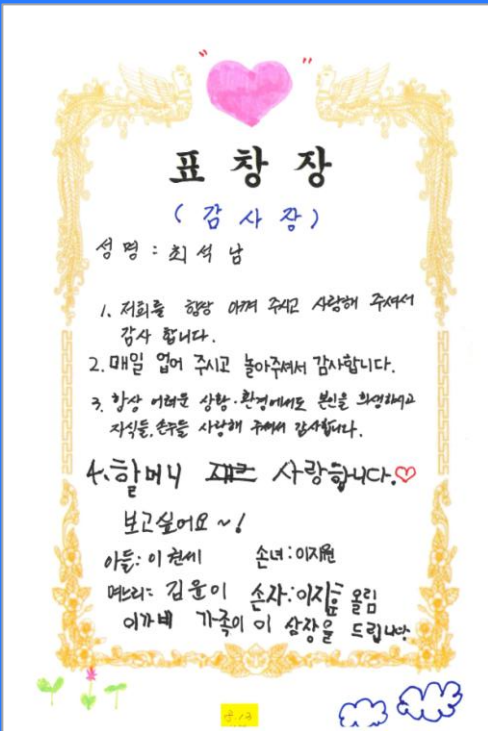 표 창 장
( 감 사 장 )
성 명 : 최 석 남
1. 저희를 항상 아껴 주시고 사랑해 주셔서
감사 합니다.
2. 매일 업어 주시고 놀아주셔서 감사합니다.
3. 항상 어려운 상황·환경에서도 본인을 희생하시고
자식들, 손주들 사랑해 주셔서 감사합니다.
4. 할머니 사랑합니다.♡
보고싶어요 ~!
아들: 이 세 손녀: 이지원
며느리: 김윤이 손자: 이지훈 올림
가족이 이 상장을 드립니다